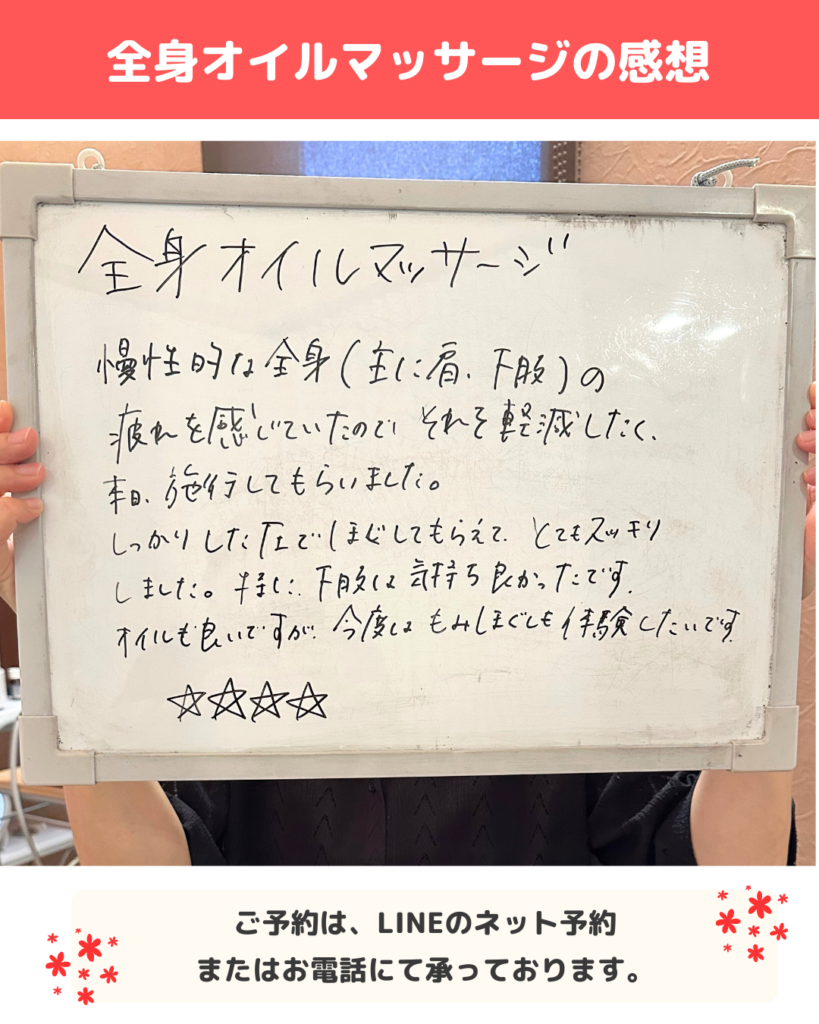 全身オイルマッサージの感想
全身オイルマッサージ
慢性的な全身(主に肩、下肢)の
疲れを感じていたので、それを軽減したく、
本日、施行してもらいました。
しっかりした圧でほぐしてもらえて、とてもスッキリ
しました。特に、下肢は気持ち良かったです。
オイルも良いですが、今度はもみほぐしも体験したいです。
☆☆☆☆
ご予約は、LINEのネット予約
またはお電話にて承っております。